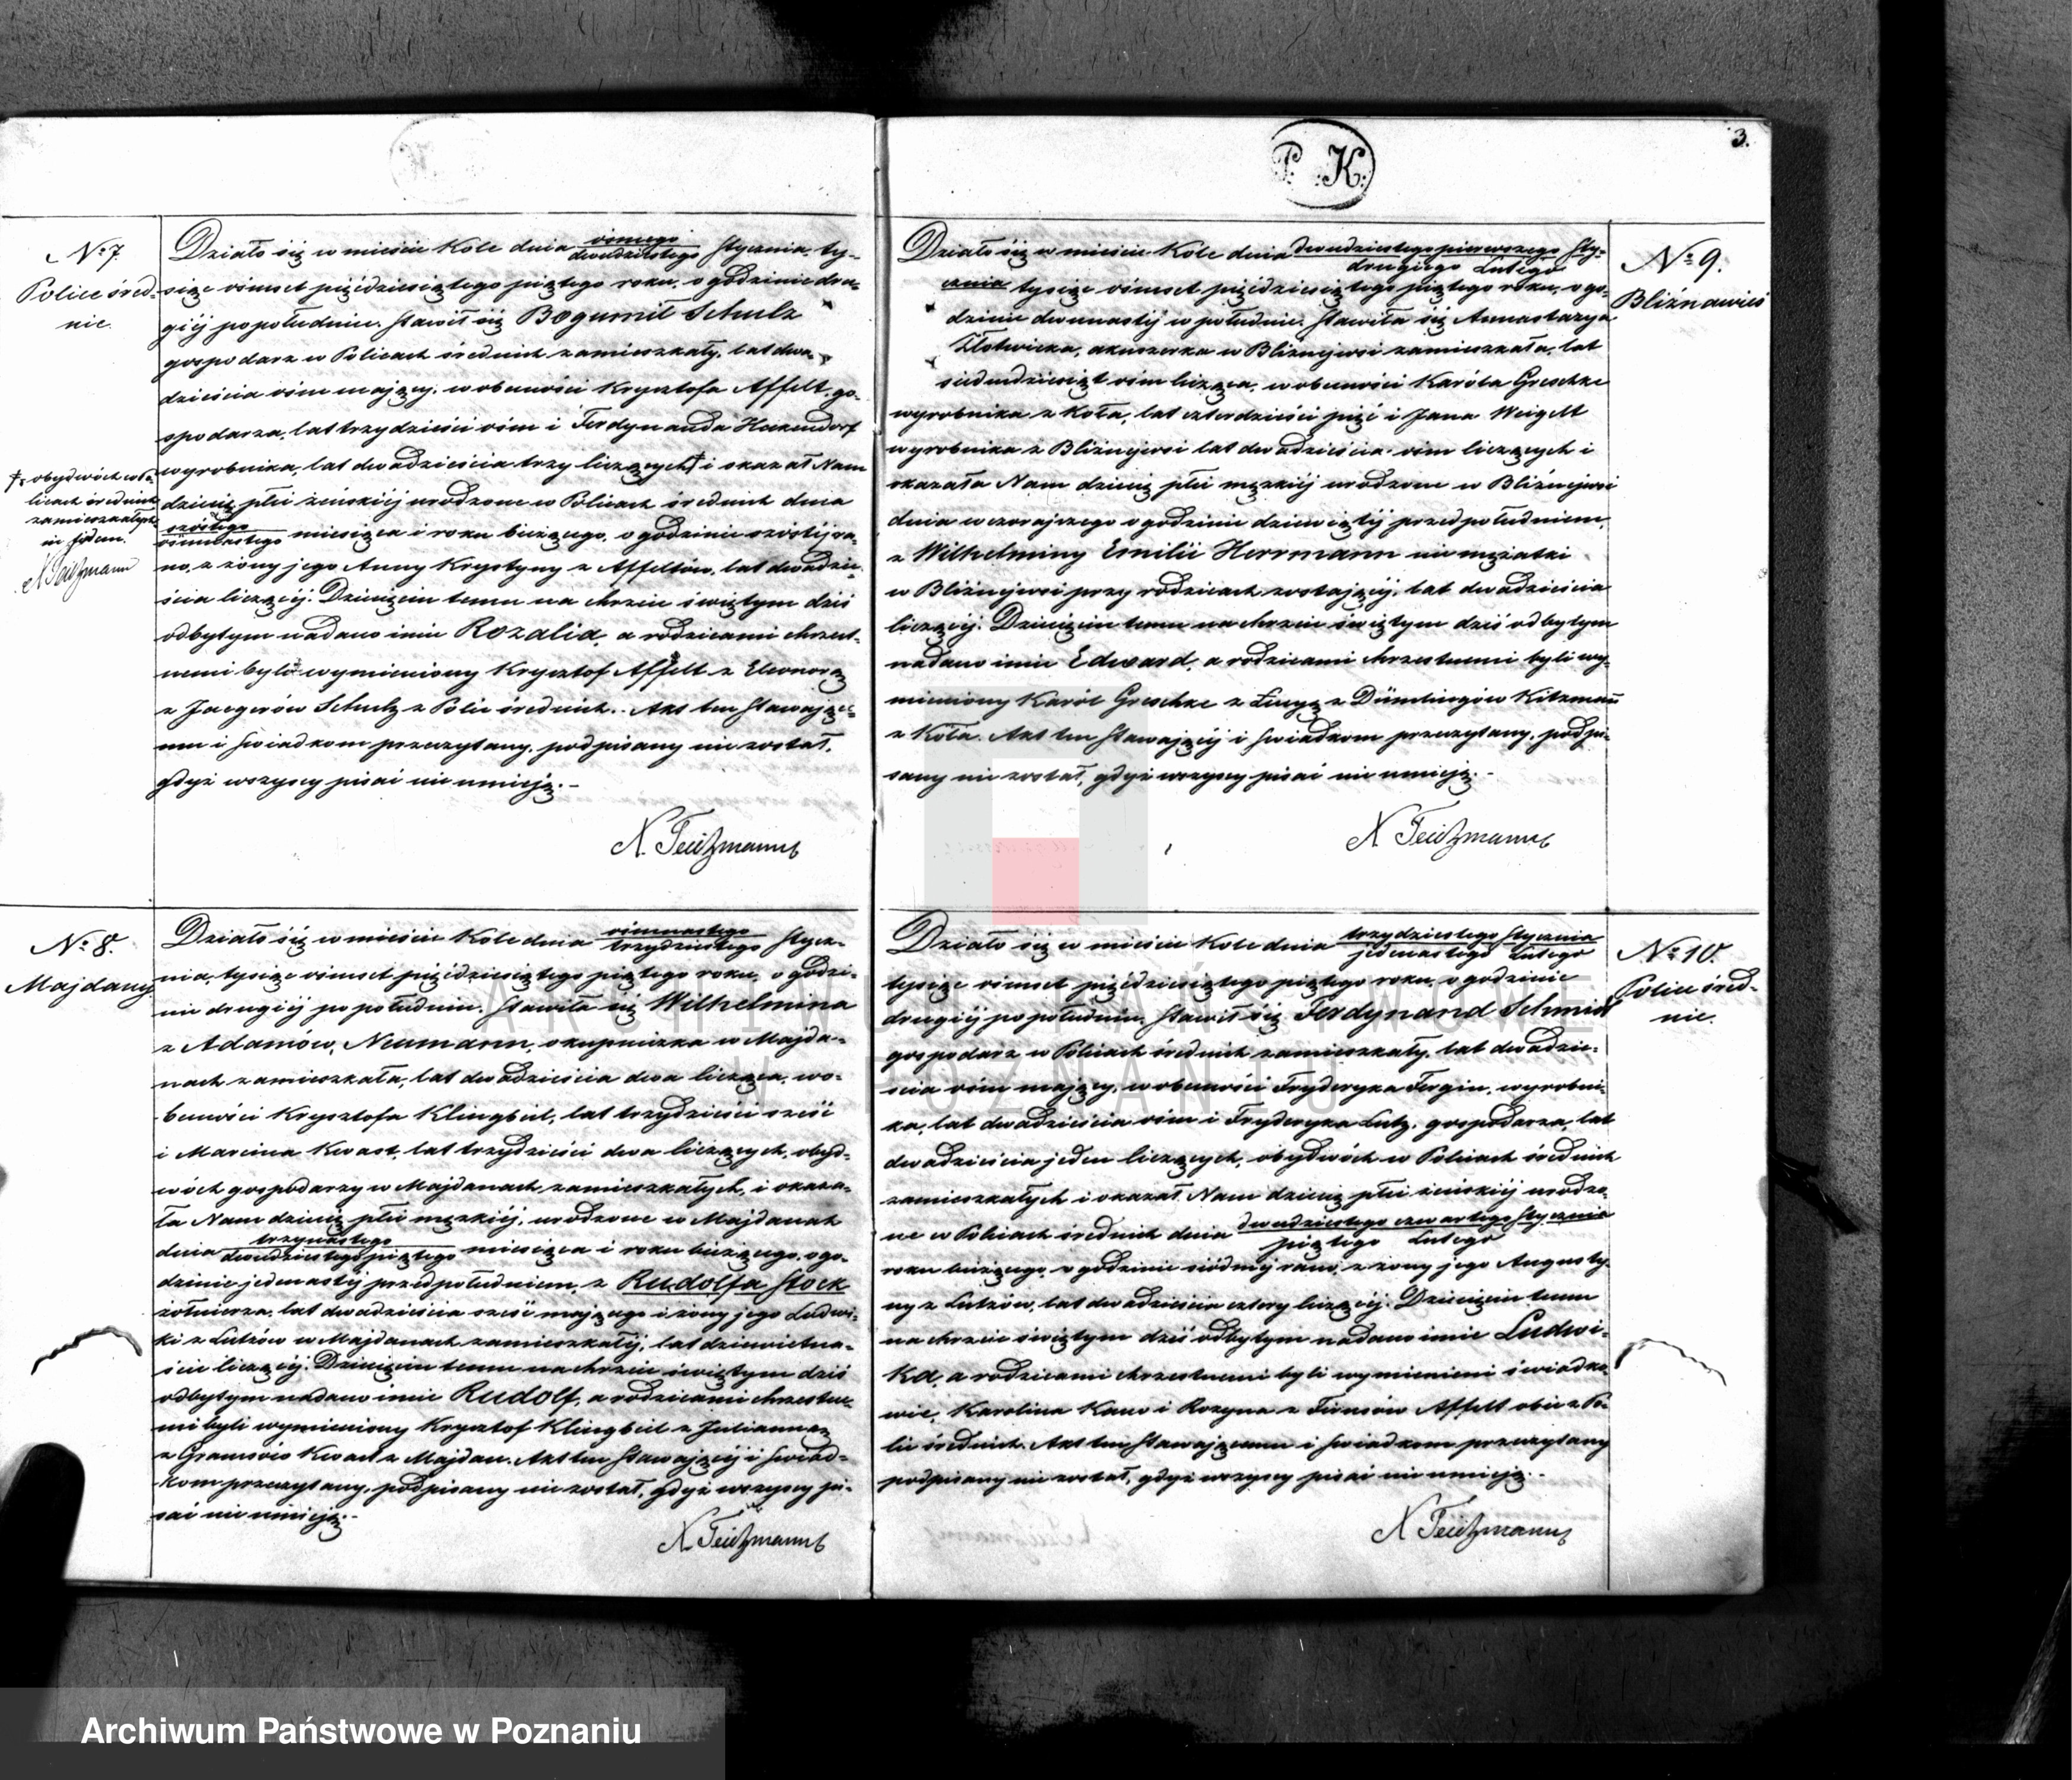 P. K.
3.
№ 7.
Police śred-
nie.
Działo się w mieście Kole dnia ósmego / dwudziestego Stycznia ty-
siąc ośmset pięćdziesiątego piątego roku, o godzinie dru-
giéj popołudniu. Stawił się Bogumił Schulz
gospodarz w Policach średnich zamieszkały, lat dwa-
dzieścia ośm mający, w obecności Krysztofa Affelt, go-
spodarza, lat trzydzieści ośm i Ferdynanda Hakendorf
wyrobnika, lat dwadzieścia trzy liczących † i okazał Nam
dziecię płci żeńskiéj urodzone w Policach średnich dnia
szóstego / ośmnastego miesiąca i roku bieżącego, o godzinie szóstéj ra-
no, z żony jego Anny Krystyny z Affeltów, lat dwadzie-
ścia liczącéj. Dziecięciu temu na chrzcie świętym dziś
odbytym nadano imie Rozalia, a rodzicami chrzest-
nemi byli wymieniony Krysztof Affelt z Eleonorą
z Jaegerów Schulz z Polic średnich. Akt ten stawające-
mu i świadkom przeczytany, podpisany nie został,
gdyż wszyscy pisać nie umieją.-
N. Teichmann
†: obydwóch w Po-
licach średnich
zamieszkałych
N Teichmann
№ 8.
Majdany.
Działo się w mieście Kole dnia ośmnastego / trzydziestego Stycz-
nia, tysiąc ośmset pięćdziesiątego piątego roku, o godzi-
nie drugiéj po południu. Stawiła się Wilhelmina
z Adamów, Neumann, okupniczka w Majda-
nach zamieszkała, lat dwadzieścia dwa licząca, wo-
becności Krysztofa Klingbeil, lat trzydzieści sześć
i Marcina Kwast, lat trzydzieści dwa liczących, obyd-
wóch gospodarzy w Majdanach zamieszkałych, i okaza-
ła Nam dziecię płci męzkiéj, urodzone w Majdanach
dnia trzynastego / dwudziestego piątego miesiąca i roku bieżącego, o go-
dzinie jedenastéj przedpołudniem, z Rudolfa Stock
żołnierza, lat dwadzieścia sześć mającego i żony jego Ludwi-
ki z Lutzów w Majdanach zamieszkałéj, lat dziewietna-
ście liczącéj. Dziecięciu temu na chrzcie świętym dziś
odbytym nadano imie Rudolf, a rodzicami chrzestne-
mi byli wymieniony Krysztof Klingbeil z Julianną
z Gramsów Kwast z Majdan. Akt ten stawającéj i świad-
kom przeczytany, podpisany nie został, gdyż wszyscy pi-
sać nie umieją.-
N. Teichmann
№ 9.
Bliźnawieś
Działo się w mieście Kole dnia dwudziestego pierwszego Sty- / drugiego Lutego
cznia tysiąc ośmset pięćdziesiątego piątego roku, o go-
dzinie dwunastéj w południe. Stawiła się Annastazya
Złotwicka, akuszerka w Bliźnejwsi zamieszkała, lat
siedmdziesiąt ośm licząca, w obecności Karóla Greschke
wyrobnika z Koła, lat czterdzieści pięć i Jana Weigelt
wyrobnika z Bliźnejwsi lat dwadzieścia ośm liczących i
okazała Nam dziecię płci męzkiéj urodzone w Bliźnejwsi
dnia wczorajszego o godzinie dziewiątéj przedpołudniem,
z Wilhelminy Emilii Herrmann niemężatki
w Bliźnejwsi przy rodzicach zostającéj, lat dwadzieścia
liczącéj. Dziecięciu temu na chrzcie świętym dziś odbytym
nadano imie Edward, a rodzicami chrzestnemi byli wy-
mieniony Karól Greschke z Łucyą z Dümlingów Kitzmañ
z Koła. Akt ten stawającéj i świadkom przeczytany, podpi-
sany nie został, gdyż wszyscy pisać nie umieją.-
N Teichmann
№ 10.
Police śred-
nie.
Działo się w mieście Kole dnia trzydziestego Stycznia / jedenastego Lutego
tysiąc ośmset pięćdziesiątego piątego roku, o godzinie
drugiéj po południu. Stawił się Ferdynand Schmidt
gospodarz w Policach średnich zamieszkały, lat dwadzie-
ścia ośm mający, w obecności Fryderyka Fergin, wyrobni-
ka, lat dwadzieścia ośm i Fryderyka Lutz, gospodarza, lat
dwadzieścia jeden liczących, obydwóch w Policach średnich
zamieszkałych i okazał Nam dziecię płci żeńskiéj urodzo-
ne w Policach średnich dnia dwudziestego czwartego Stycznia / piątego Lutego
roku bieżącego, o godzinie siódméj rano, z żony jego Augusty-
ny z Lutzów, lat dwadzieścia cztery liczącéj. Dziecięciu temu
na chrzcie świętym dziś odbytym nadano imie Ludwi-
ka, a rodzicami chrzestnemi byli wymienieni świadko-
wie, Karolina Kano i Rozyna z Firusów Affelt obie z Po-
lic średnich. Akt ten stawającemu i świadkom przeczytany
podpisany nie został, gdyż wszyscy pisać nie umieją.-
N Teichmann
ARCHIWUM PAŃSTWOWE
W POZNANIU
Archiwum Państwowe w Poznaniu